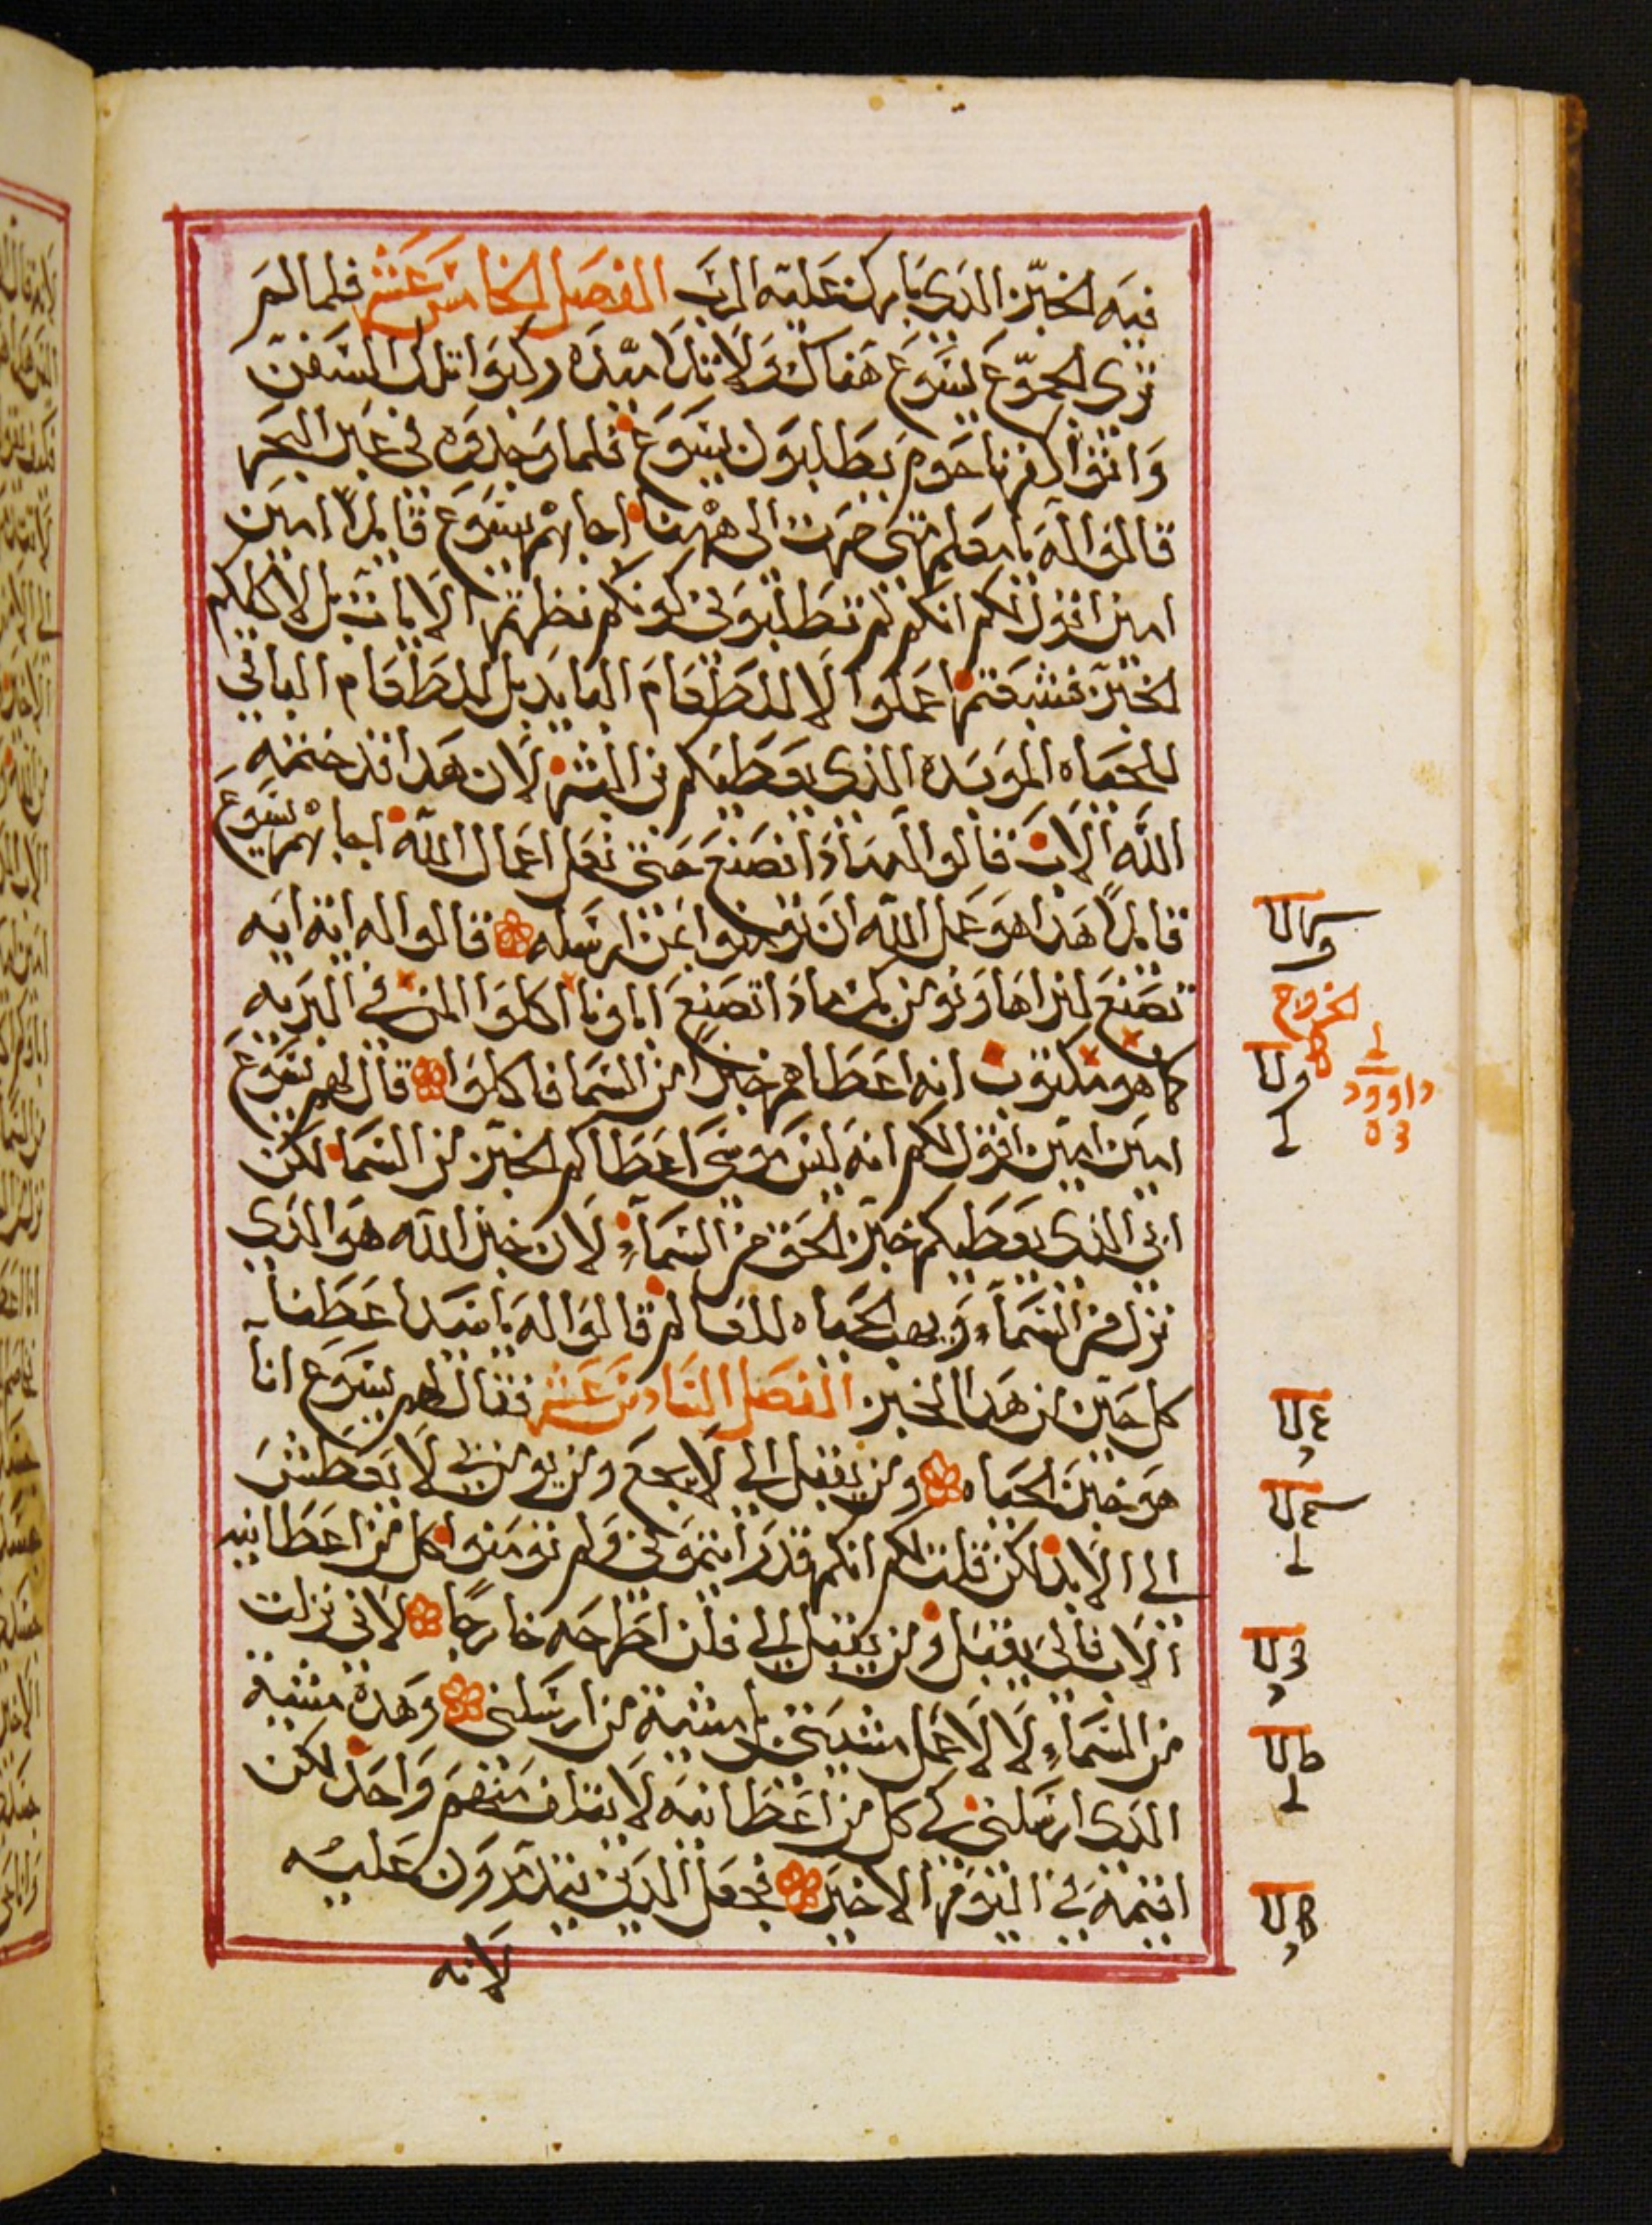 فيه الخبز الذي بارك عليه الرب الفصل الخامس عشر فلما لم
تري الجموع يسوع هناك ولا تلاميده ركبوا تلك السفن
واتوا كفرناحوم يطلبون يسوع فلما وجدوه في عبر البحر
قالوا له يا معلم متى صرت الى ههنا اجابهم يسوع قايلاً امين
امين اقول لكم انكم لم تطلبوني كونكم نظرتم الايات بل لاكلكم
الخبز فشبعتم اعملوا لا للطعام البايد بل للطعام الباقي
للحياه الموبده الذي يعطيكم بن البشر لان هدا قد ختمه
الله الاب قالوا له ماذا نصنع حتى نعمل اعمال الله اجابهم يسوع
قايلاً هذا هو عمل الله ان تومنوا بمن ارسله قالوا له اية ايه
تصنع لنراها ونومن بك ماذا تصنع اباونا اكلوا المن في البريه
كما هو مكتوب انه اعطاهم خبزاً من السما فاكلوا قال لهم يسوع
امين امين اقول لكم انه ليس موسى اعطاكم الخبز من السما لكن
ابي الذي يعطيكم خبز الحق من السمآء لان خبز الله هو الذي
نزل من السمآء ويهب الحياه للعالم قالوا له يا سيد اعطنا
كل حين من هذا الخبز الفصل السادس عشر فقال لهم يسوع انا
هو خبز الحياه ومن يقبل الي لا يجوع ومن يومن بي لا يعطش
الى الابد لكن قلت لكم انكم قد رايتموني ولم تومنوا كل من اعطانيه
الاب فالي يقبل ومن يقبل الي فلن اطرحه خارجاً لاني نزلت
من السمآء لا لاعمل مشيتي بل مشية من ارسلني وهذه مشية
الذي ارسلني كي كل من اعطانيه لا يتلف منهم واحد لكن
اقيمه في اليوم الاخير فجعل الذين يتذمرون عليه
لانه
الخروج
داوود